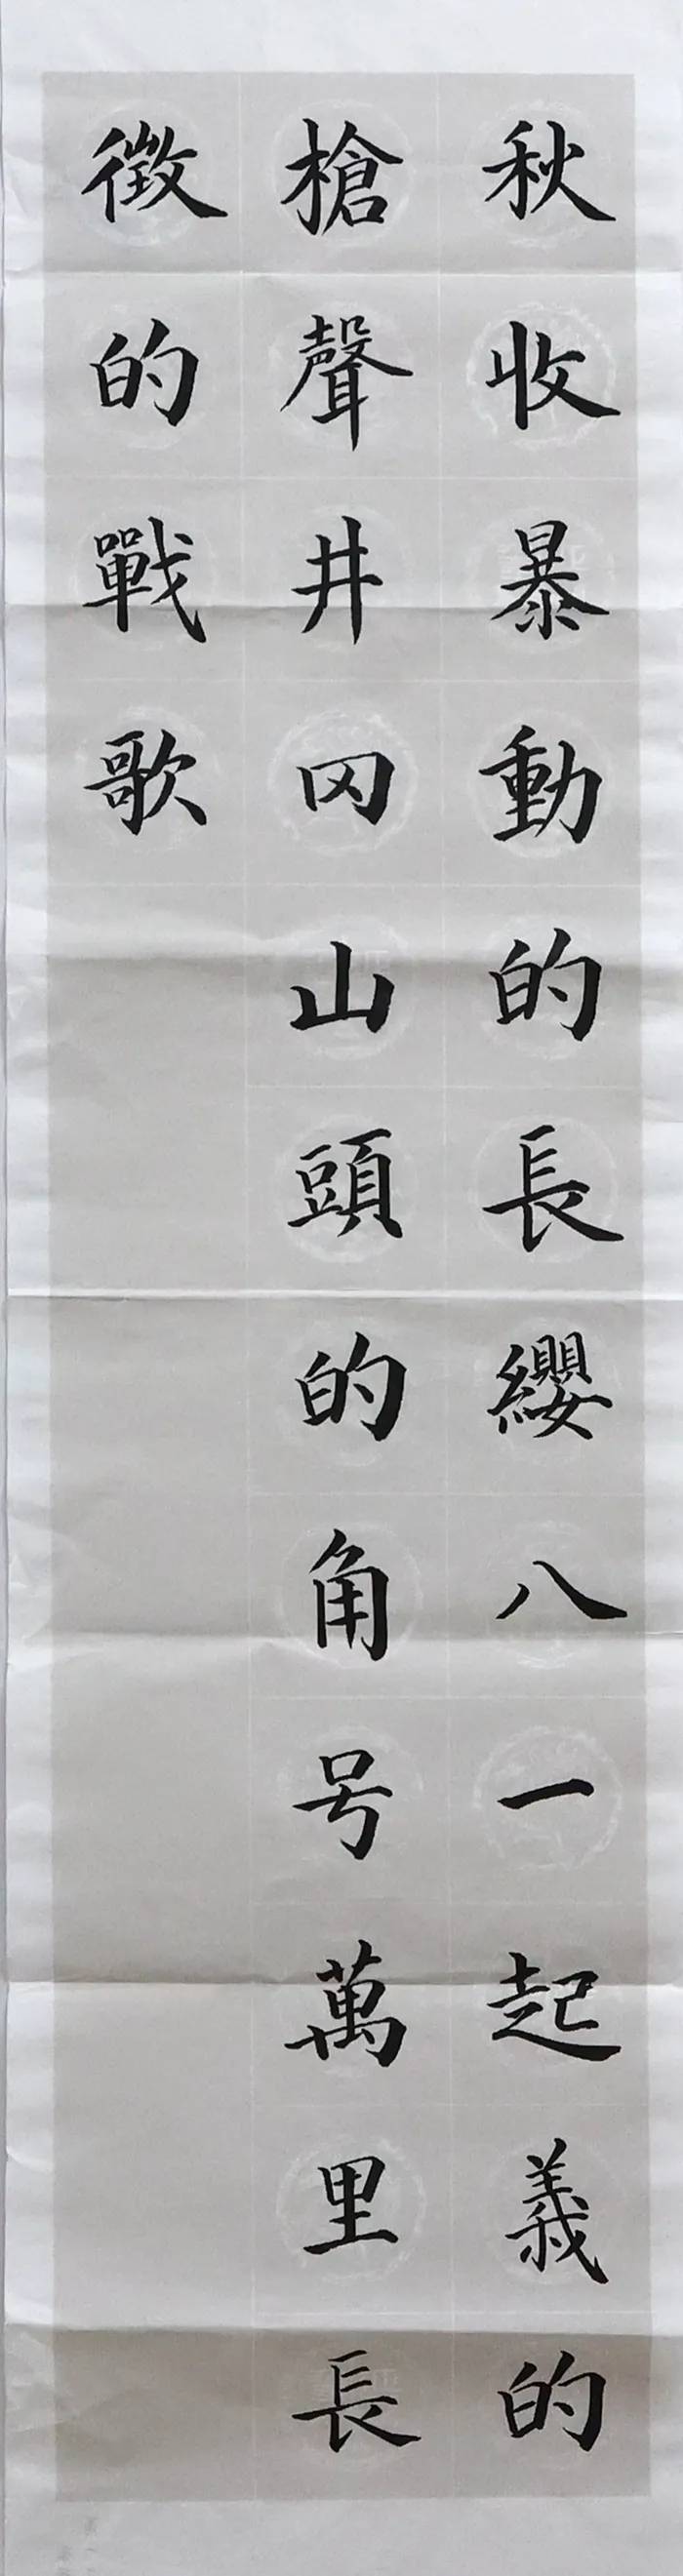 秋收暴動的長纓八一起義的
槍聲井岡山頭的角号萬里長
徵的戰歌